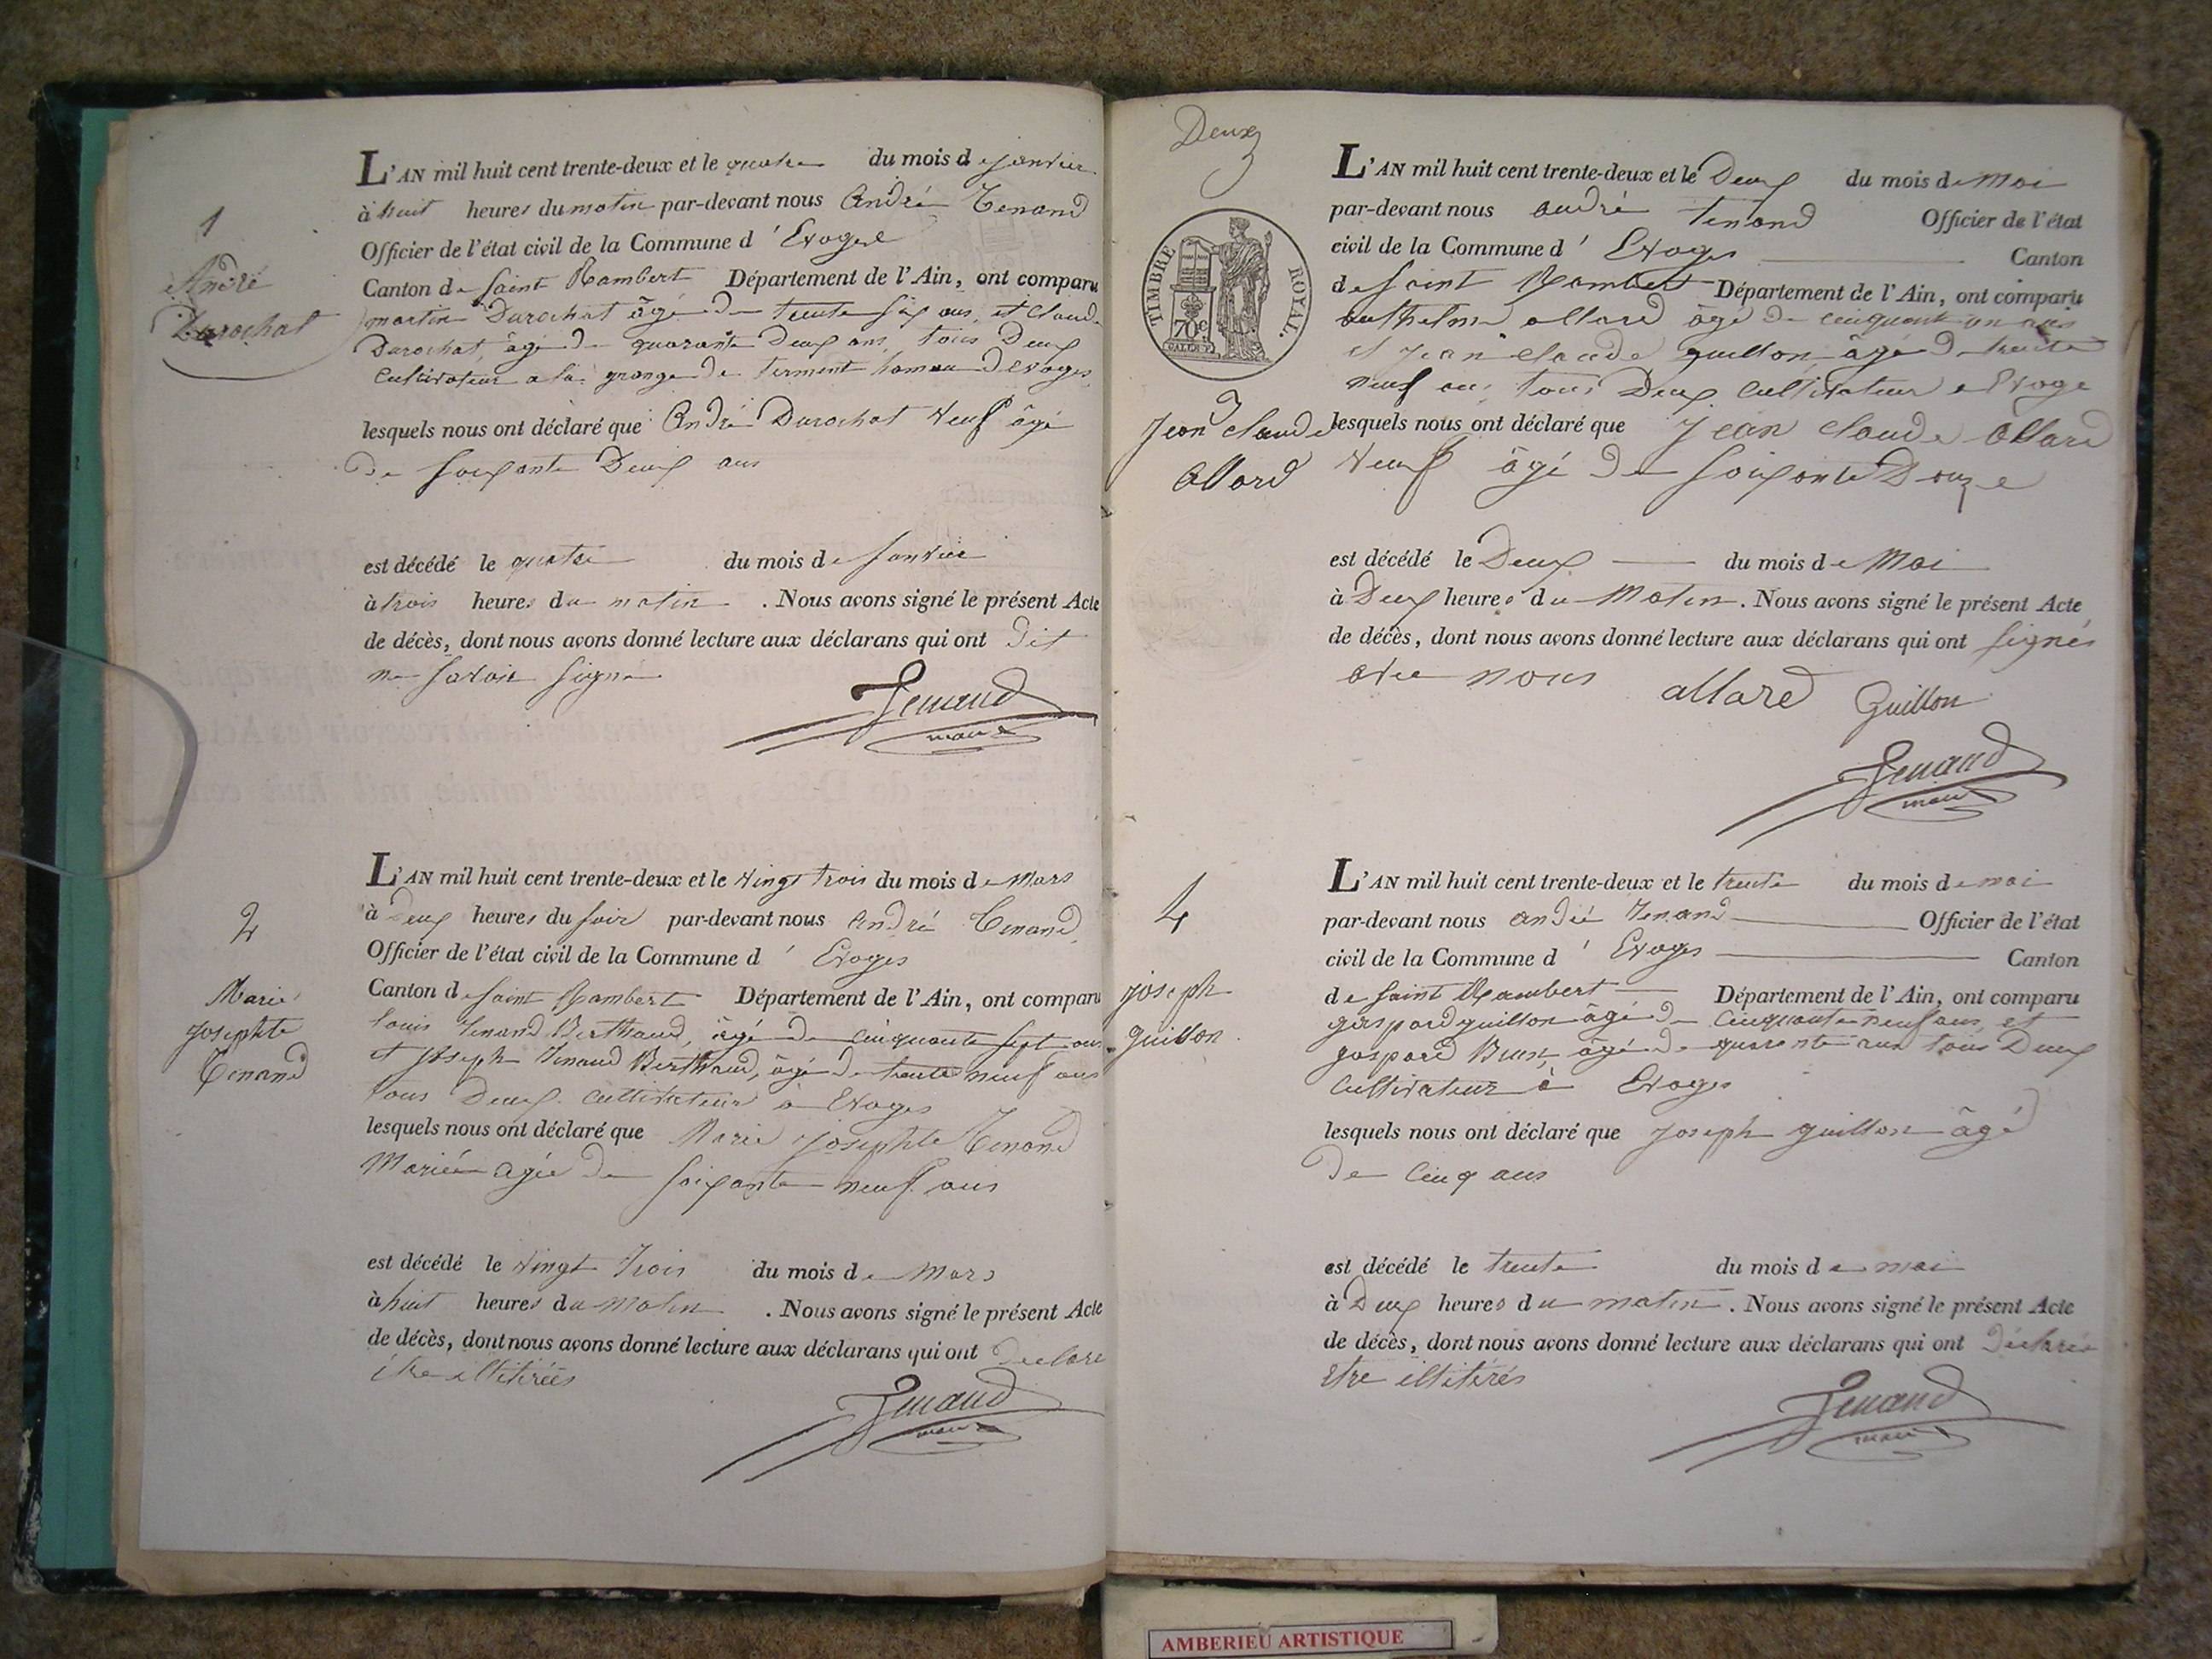 1
André
Durochat
L'AN mil huit cent trente-deux et le quatre du mois de janvier
à huit heures du matin par-devant nous André Tenand
Officier de l'état civil de la Commune d'Evoges
Canton de Saint Rambert Département de l'Ain, ont comparu
martin Durochat âgé de trente six ans, et Claude
Durochat, âgé de quarante Deux ans, tous Deux
Cultivateur a la grange de terment hameau d'Evoges
lesquels nous ont déclaré que André Durochat veuf âgé
de soixante Deux ans
est décédé le quatre du mois de Janvier
à trois heures du matin . Nous avons signé le présent Acte
de décès, dont nous avons donné lecture aux déclarans qui ont dit
ne savoir signé
Tenand
maire
2
Marie
Josephte
Tenand
L'AN mil huit cent trente-deux et le vingt trois du mois de Mars
à Deux heures du soir par-devant nous André Tenand
Officier de l'état civil de la Commune d'Evoges
Canton de Saint Rambert Département de l'Ain, ont comparu
louis Tenand Berthaud, âgé de cinquante sept ans
et Joseph Tenand Berthaud, âgé de trente neuf ans
tous Deux cultivateur à Evoges
lesquels nous ont déclaré que Marie Josephte Tenand
Mariée agée de soixante neuf ans
est décédé le vingt trois du mois de Mars
à huit heures du matin . Nous avons signé le présent Acte
de décès, dont nous avons donné lecture aux déclarans qui ont declare
être illitirées
Tenand
maire
Deux
TIMBRE ROYAL.
70c
3
Jean Claude
Allard
L'AN mil huit cent trente-deux et le Deux du mois de Mai
par-devant nous André tenand Officier de l'état
civil de la Commune d'Evoges Canton
de Saint Rambert Département de l'Ain, ont comparu
anthelme allard âgé de cinquante un ans
et Jean Claude guillon, âgé de trente
neuf ans, tous Deux Cultivateur a Evoge
lesquels nous ont déclaré que Jean Claude Allard
veuf âgé de soixante Douze
est décédé le Deux du mois de Mai
à Deux heures du Matin. Nous avons signé le présent Acte
de décès, dont nous avons donné lecture aux déclarans qui ont signés
avec nous allard Guillon
Tenand
maire
4
joseph
guillon
L'AN mil huit cent trente-deux et le trente du mois de mai
par-devant nous André Tenand Officier de l'état
civil de la Commune d'Evoges Canton
de Saint Rambert Département de l'Ain, ont comparu
gaspard guillon âgé de cinquante neuf ans, et
gaspard Brun, âgé de quarante ans tous Deux
Cultivateur à Evoges
lesquels nous ont déclaré que Joseph guillon âgé
de cinq ans
est décédé le trente du mois de mai
à Deux heures du matin. Nous avons signé le présent Acte
de décès, dont nous avons donné lecture aux déclarans qui ont déclarés
etre illitirés
Tenand
maire
AMBERIEU ARTISTIQUE